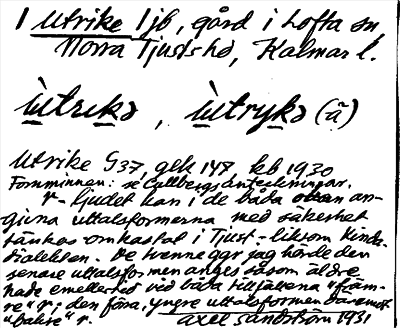 1 Utrike 1 jb, gård i Lofta sn
Norra Tjusts hd, Kalmar l.
ùtrikə, ùtrykə (ä)
Utrike G37, gek 148 kb 1930
Fornminnen: se Cullbergs anteckningar.
r-ljudet kan i de båda ovan an-
givna uttalsformerna med säkerhet
tänkas omkastat i Tjust- liksom Kinda-
dialekten. De tvenne ggr jag hörde den
senare uttalsformen angls såsom äldre
hade emellertid vid båda tillfällena "främ-
re" r; den förra, yngre uttalsformen däremot
"bakre" r. Axel Sandström 1931